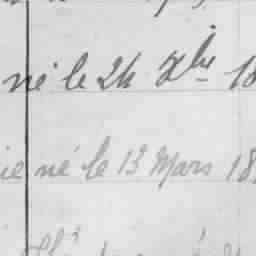 né le 24 Xbre 18
ie né le 13 Mars 18